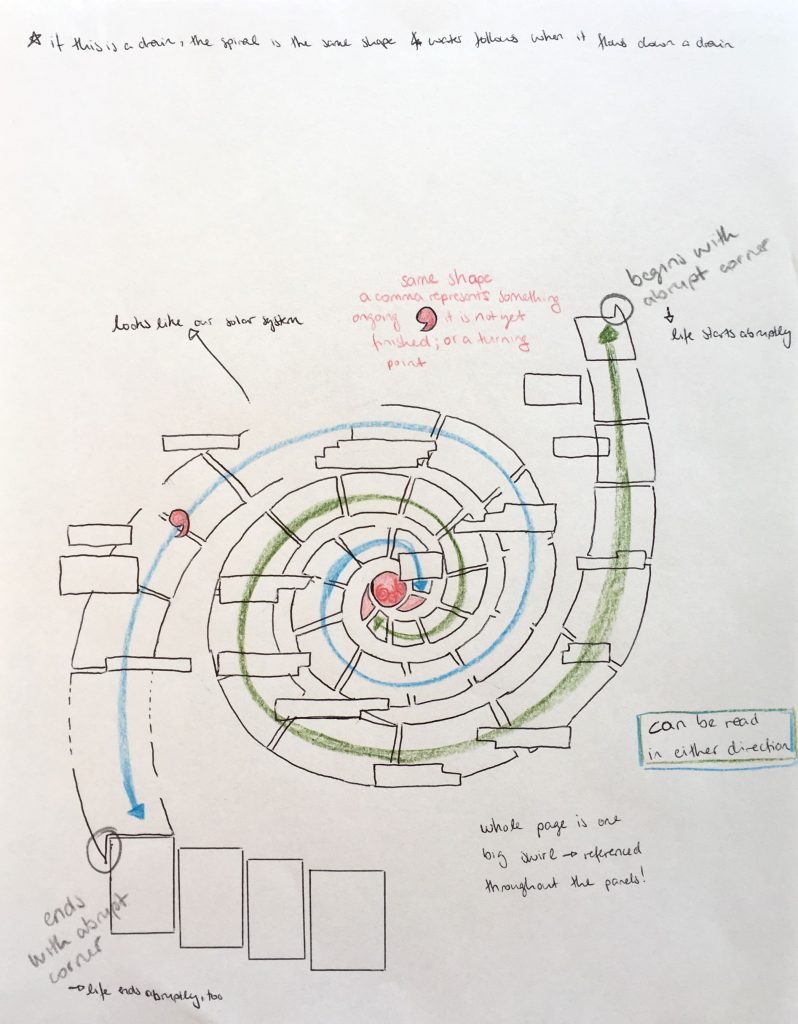 ☆ if this is a drain, the spiral is the same shape water follows when it flows down a drain
begins with
abrupt corner
↓
life starts abruptly
same shape
a comma represents something
ongoing it is not yet
finished; or a turning
point
looks like our solar system
can be read
in either direction
whole page is one
big swirl → referenced
throughout the panels!
ends
with abrupt
corner
→ life ends abruptly, too